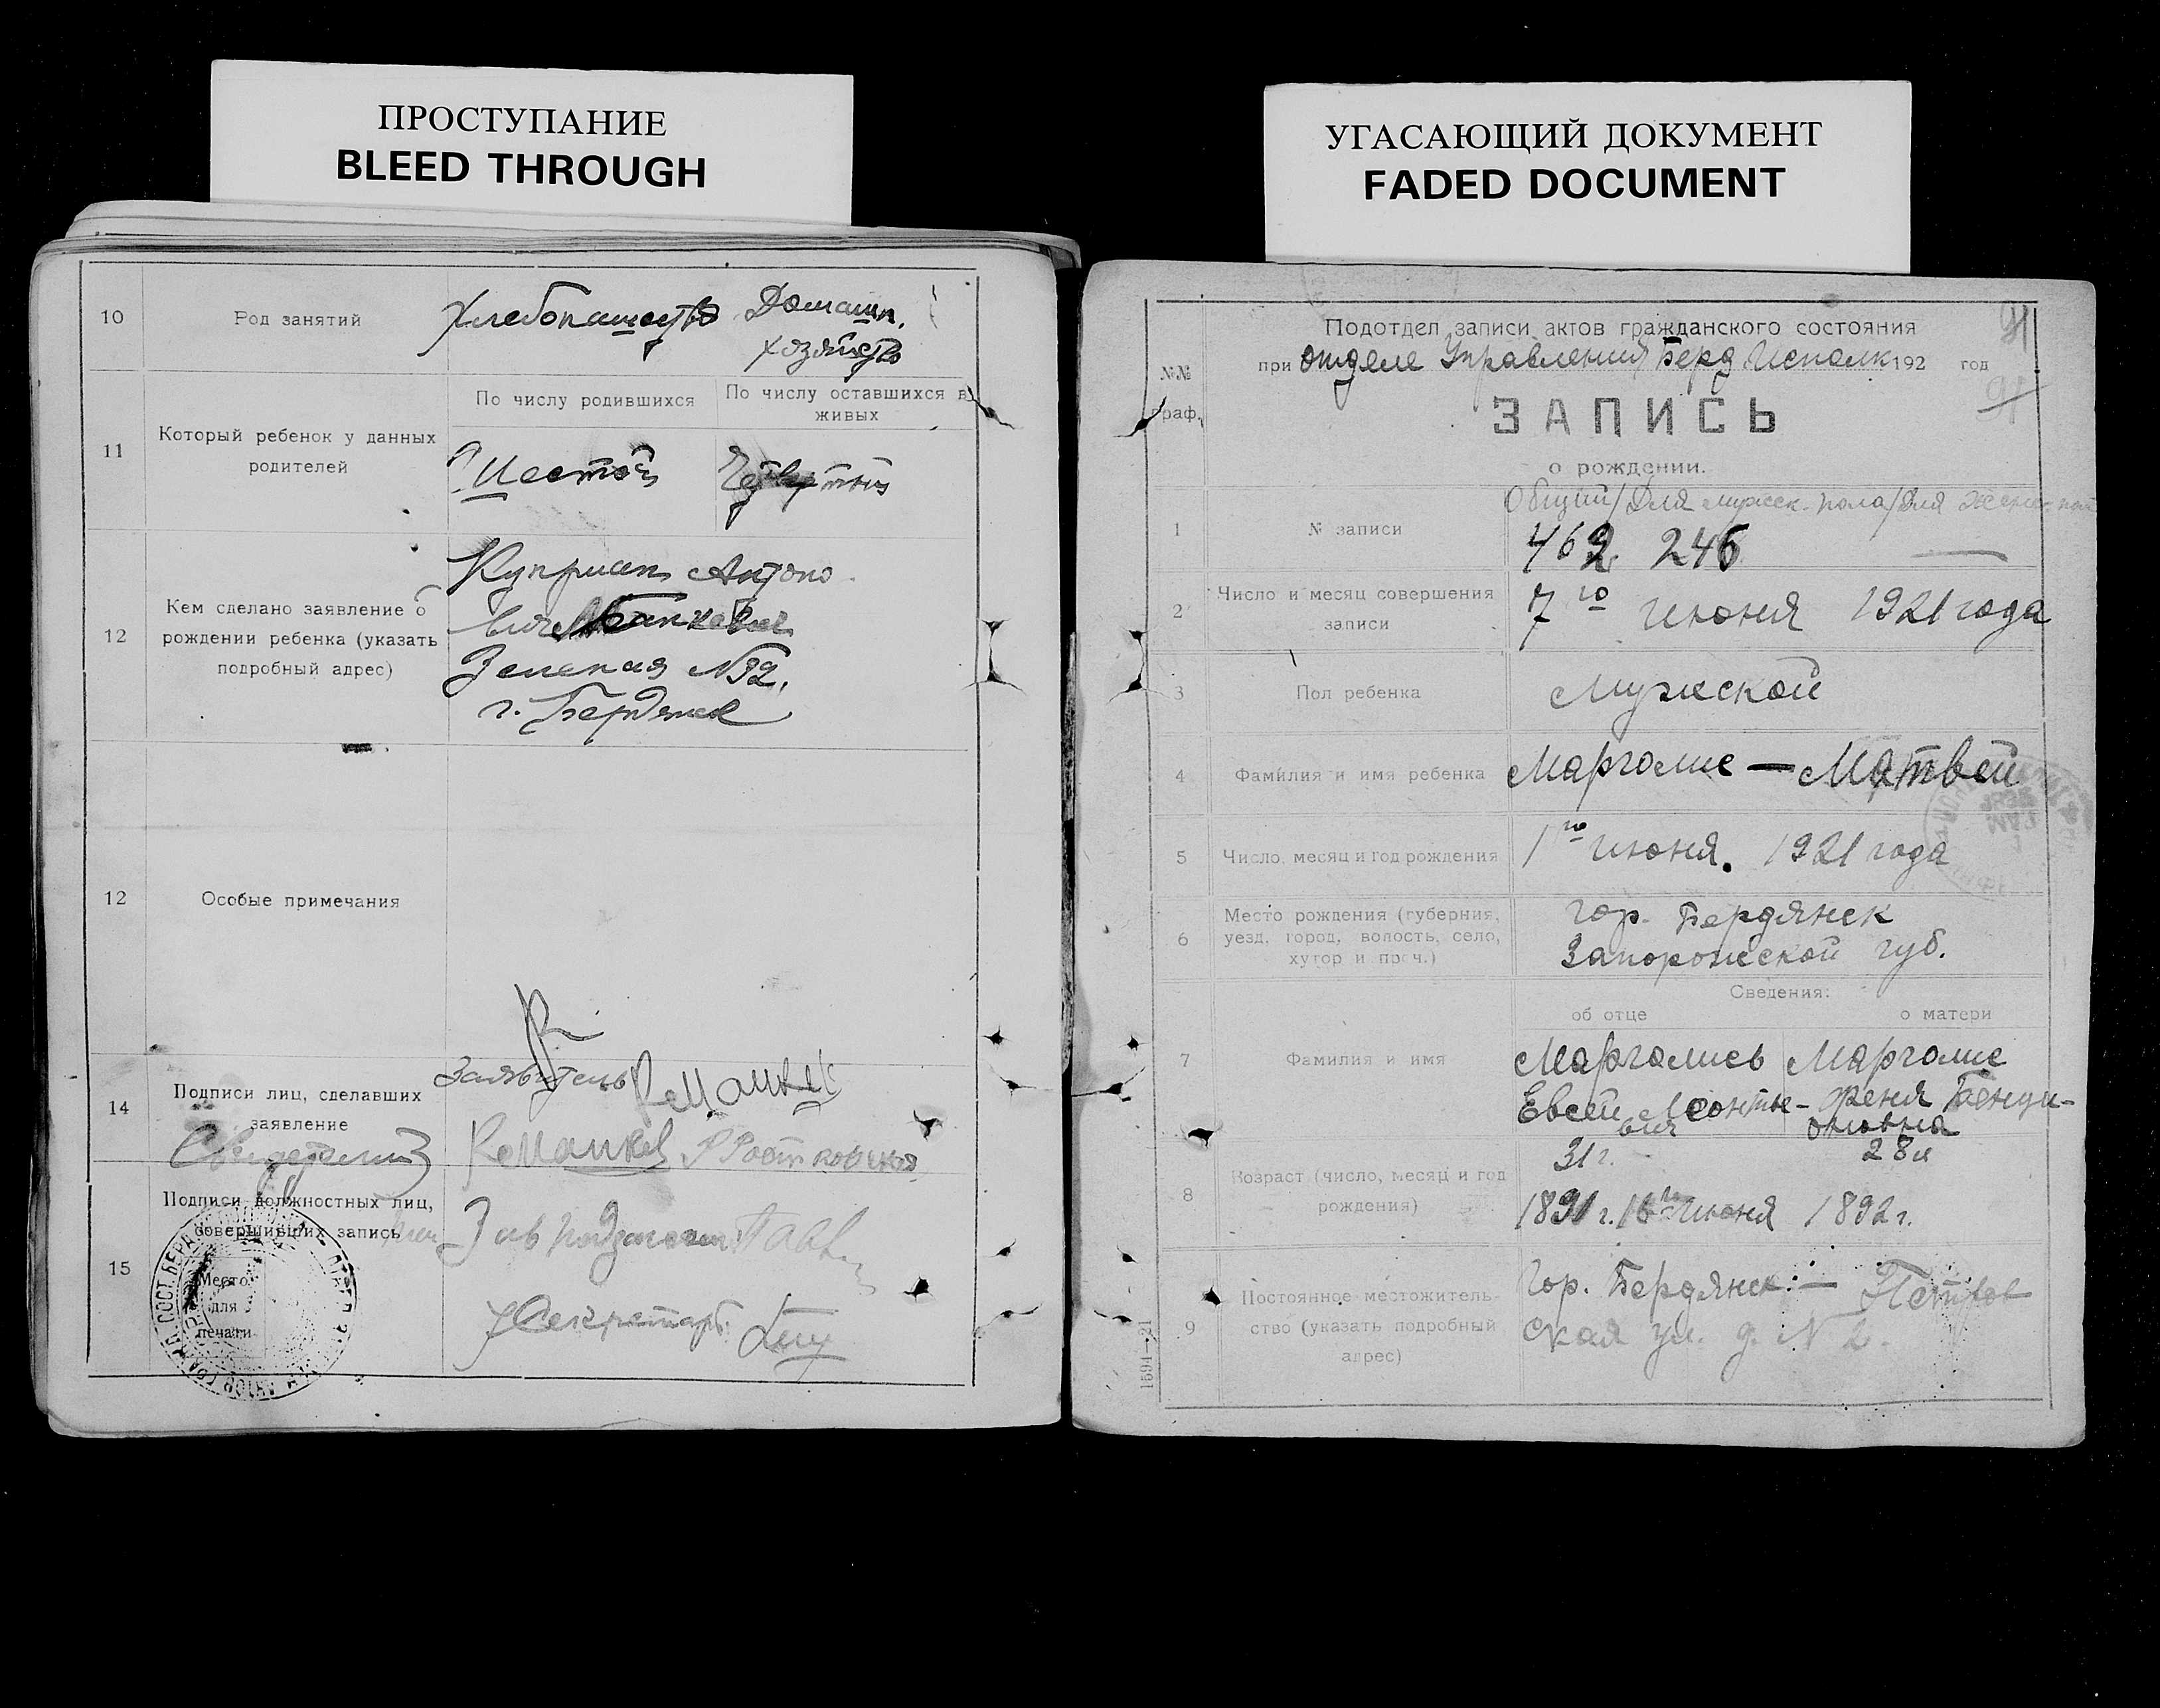 ПРОСТУПАНИЕ
BLEED THROUGH
10
Род занятий
Хлебопашество
Домашн.
хозяйство
11
Который ребенок у данных
родителей
По числу родившихся
По числу оставшихся в
живых
Шестой
Четвертый
12
Кем сделано заявление о
рождении ребенка (указать
подробный адрес)
Куприан Антоно
Зеленая №92.
г. Бердянск
12
Особые примечания
14
Подписи лиц, сделавших
заявление
Заявитель
Свидетели
15
Подписи должностных лиц,
совершивших запись
Место
для
печати
Зав
Секретарь
УГАСАЮЩИЙ ДОКУМЕНТ
FADED DOCUMENT
91
№№
граф.
Подотдел записи актов гражданского состояния
при отделе Управления Берд Исполк 192 год
ЗАПИСЬ
о рождении.
Общий/Для мужск. пола/Для женск. пол
1
№ записи
462 246 —
2
Число и месяц совершения
записи
7го июня 1921 года
3
Пол ребенка
Мужской
4
Фамилия и имя ребенка
Марголис — Матвей
5
Число, месяц и год рождения
1го июня. 1921 года
6
Место рождения (губерния,
уезд, город, волость, село,
хутор и проч.)
гор. Бердянск
Запорожской губ.
Сведения:
об отце
о матери
7
Фамилия и имя
Марголись
Евсей Леонтье-
вич
Марголис
Феня
31 г.
28 л
8
Возраст (число, месяц и год
рождения)
1891 г. 16го Июня
1892 г.
9
Постоянное местожитель-
ство (указать подробный
адрес)
Гор. Бердянск. — Петров
ская ул. д. № 2.
1594—21